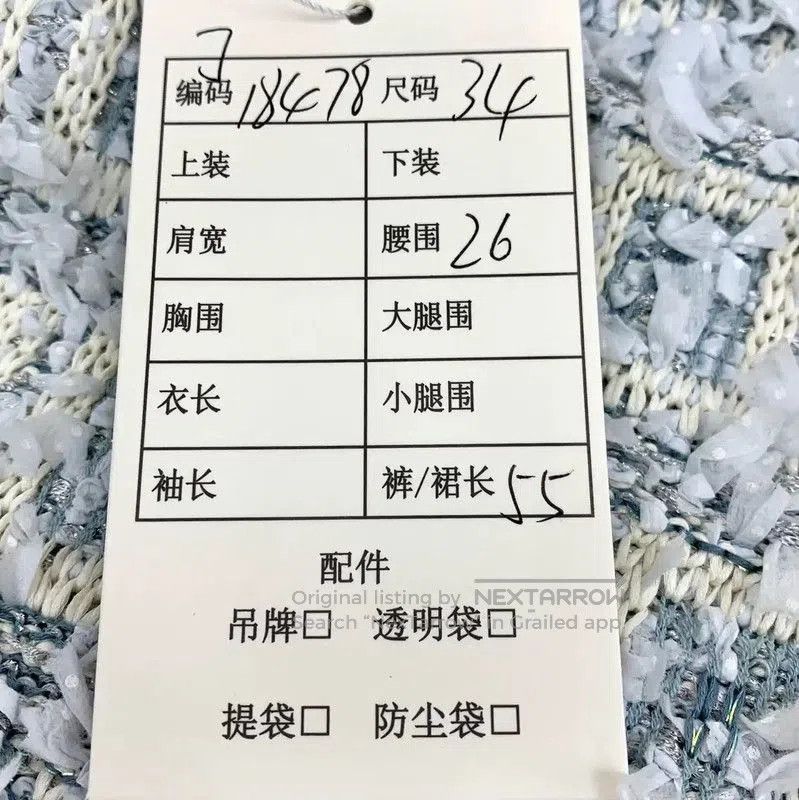 编码 J18478 尺码 34
上装 下装
肩宽 腰围 26
胸围 大腿围
衣长 小腿围
袖长 裤/裙长 55
配件
Original listing by NEXTARROW
吊牌□ 透明袋□
Search "NextArrow" in Grailed app
提袋□ 防尘袋□